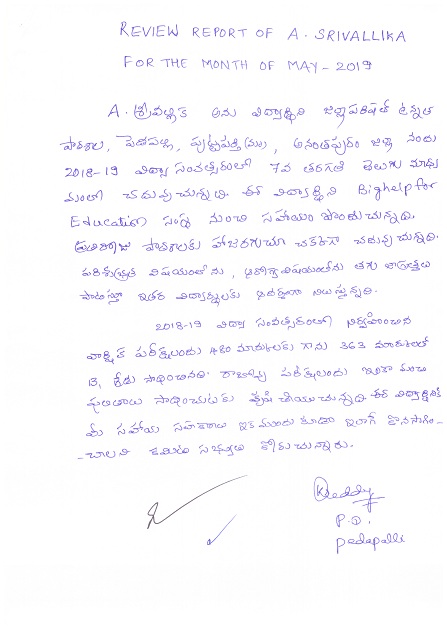 REVIEW REPORT OF A. SRIVALLIKA
FOR THE MONTH OF MAY - 2019
A. శ్రీవల్లిక అను విద్యార్థిని జిల్లాపరిషత్ ఉన్నత
పాఠశాల, పెదపల్లి, పుట్టపర్తి (మం), అనంతపురం జిల్లా నందు
2018-19 విద్యా సంవత్సరంలో 7వ తరగతి తెలుగు మాధ్య
మంలో చదువుచున్నది. ఈ విద్యార్థిని Bighelp for
Education సంస్థ నుంచి సహాయం పొందుచున్నది.
ప్రతిరోజు పాఠశాలకు హాజరగుచూ చక్కగా చదువుచున్నది.
పరిశుభ్రత విషయంలోను, ఆరోగ్య విషయంలోను తగు జాగ్రత్తలు
పాటిస్తూ ఇతర విద్యార్థులకు ఆదర్శంగా నిలుస్తున్నది.
2018-19 విద్యా సంవత్సరంలో నిర్వహించిన
వార్షిక పరీక్షలందు 480 మార్కులకు గాను 363 మార్కులతో
B, గ్రేడు సాధించినది. రాబోవు పరీక్షలందు ఇంకా మంచి
ఫలితాలు సాధించుటకు కృషి చేయుచున్నది. ఈ విద్యార్థినికి
మీ సహాయ సహకారాలు ఇక ముందు కూడా ఇలాగే కొనసాగిం-
-చాలని కమిటి సభ్యులు కోరుచున్నారు.
KReddy
P.D.
Pedapalli